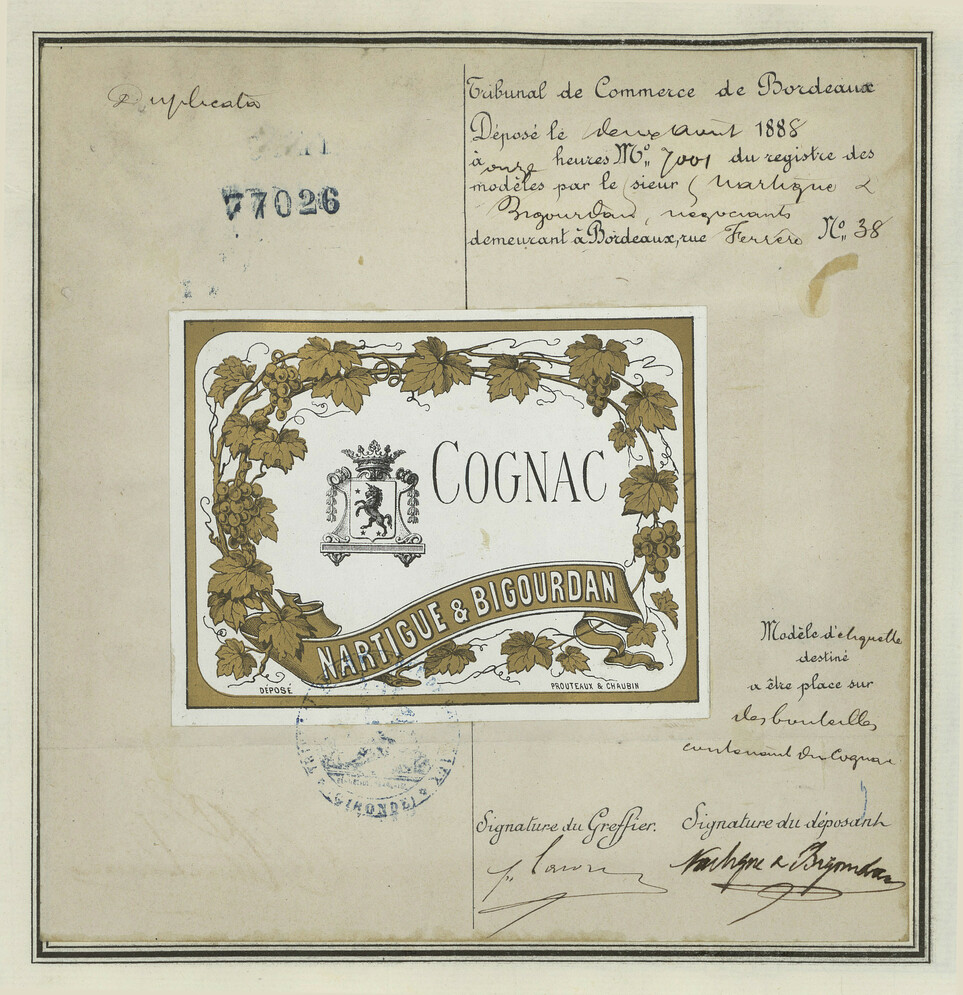 Duplicata
77026
Tribunal de Commerce de Bordeaux
Déposé le deux août 1888
à onze heures No 7001 du registre des
modèles par le sieur Nartigue &
Bigourdan, négociants
demeurant à Bordeaux, rue Ferrère No 38
COGNAC
NARTIGUE & BIGOURDAN
DÉPOSÉ
PROUTEAUX & CHAUBIN
Modèle d'étiquette
destiné
a être place sur
des bouteilles
contenant du Cognac
GIRONDE
Signature du Greffier. Signature du déposant
Nartigue & Bigourdan